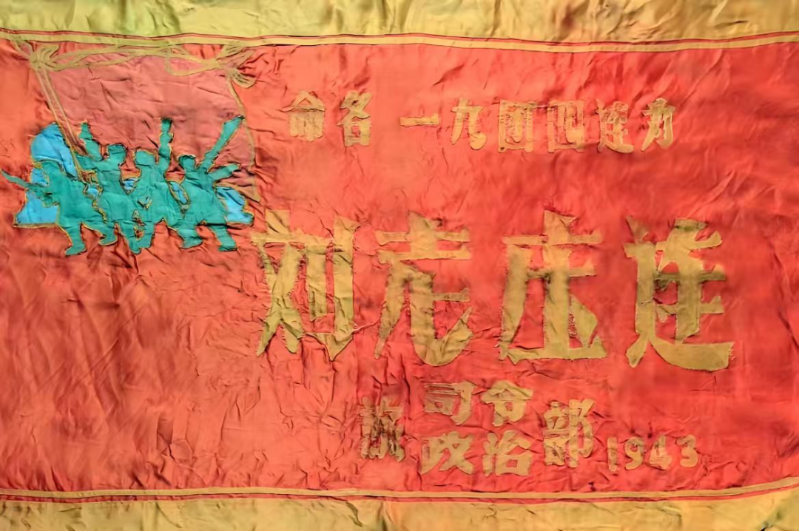 命名 一九团四连为
刘老庄连
旅 司令 部 1943
政治